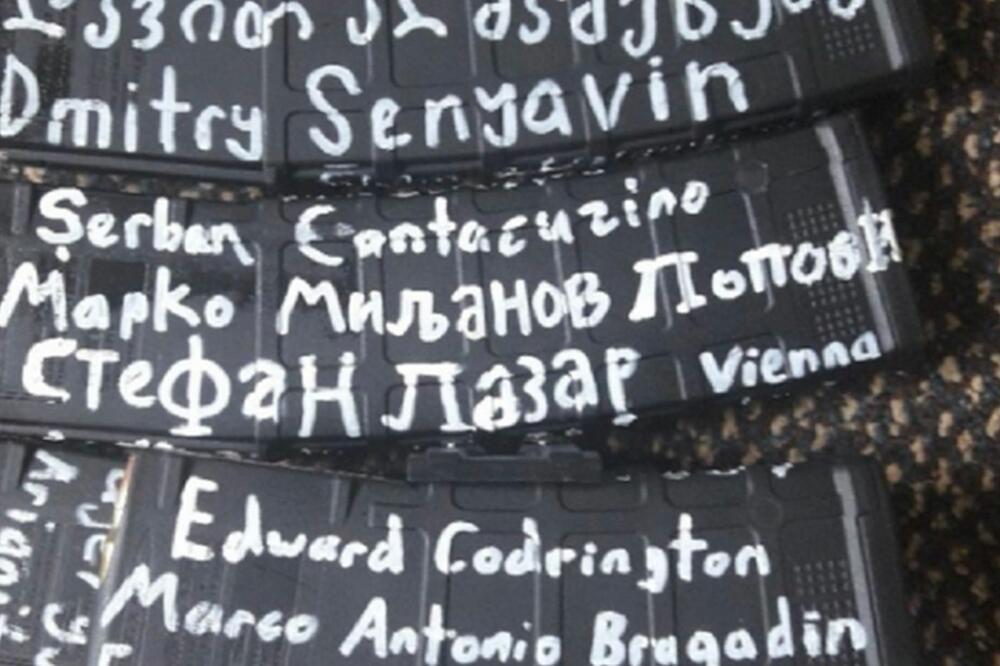 Dmitry Senyavin
Șerban Cantacuzino
Марко Миљанов Попови
Стефан Лазар Vienna
Edward Codrington
Marco Antonio Bragadin